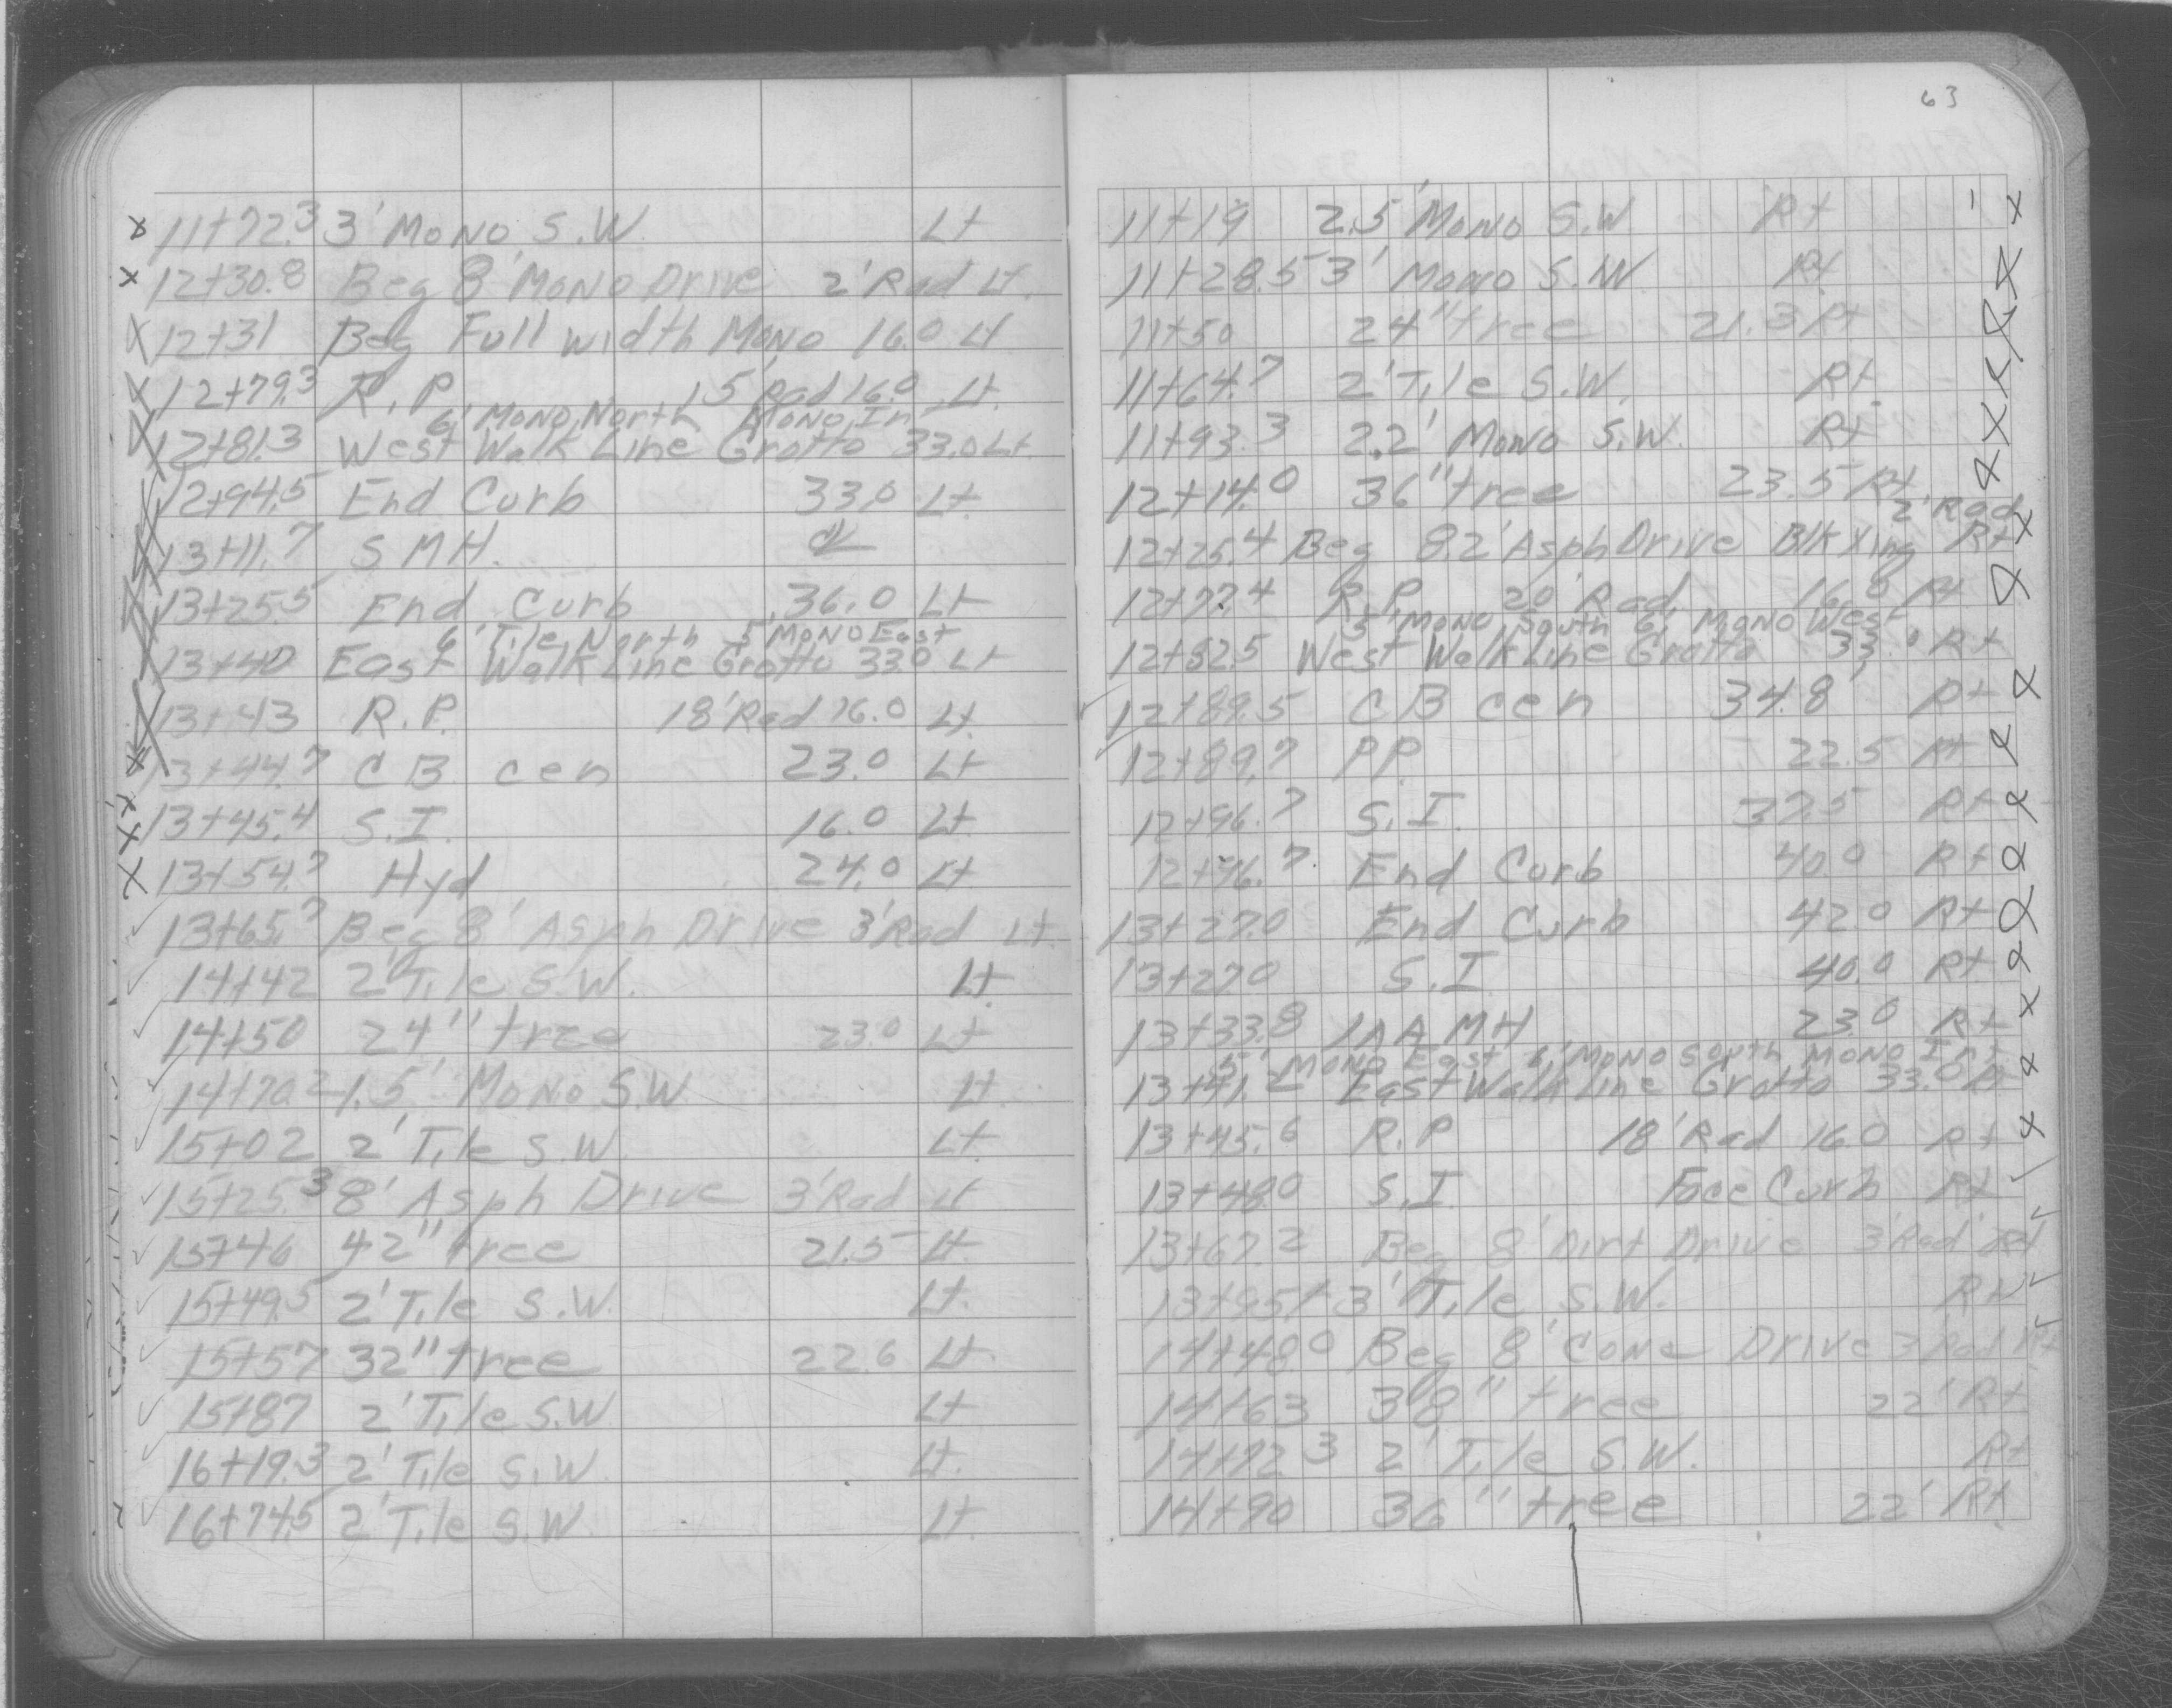 11+72.3 3' Mono S.W. Lt
12+30.8 Beg 8' Mono Drive 2' Rad Lt.
12+31 Beg Full width Mono 16.0 Lt
12+79.3 R.P. 15' Rad 16.0 Lt.
6' Mono North Mono Int
12+81.3 West Walk Line Grotto 33.0 Lt.
12+94.5 End Curb 33.0 Lt.
13+11.7 S M H. ℄
13+25.5 End Curb 36.0 Lt
6' Tile North 5' Mono East
13+40 East Walk Line Grotto 33.0 Lt
13+43 R.P. 18' Rad 16.0 Lt.
13+44.7 C B cen 23.0 Lt
13+45.4 S.I. 16.0 Lt
13+54.7 Hyd 24.0 Lt
13+65.7 Beg 8' Asph Drive 3' Rad Lt.
14+42 2' Tile S.W. Lt.
14+50 24" tree 23.0 Lt
14+70.2 1.5' Mono S.W Lt.
15+02 2' Tile S.W. Lt.
15+25.3 8' Asph Drive 3' Rad Lt
15+46 42" tree 21.5 Lt.
15+49.5 2' Tile S.W. Lt.
15+57 32" tree 22.6 Lt.
15+87 2' Tile S.W Lt
16+19.3 2' Tile S.W. Lt.
16+74.5 2' Tile S.W. Lt.
63
11+19 2.5' Mono S.W. Rt
11+28.5 3' Mono S.W. Rt
11+50 24" tree 21.3 Rt
11+64.7 2' Tile S.W. Rt.
11+93.3 2.2' Mono S.W. Rt
12+14.0 36" tree 23.5 Rt
2' Rad
12+25.4 Beg 8.2' Asph Drive Blk Xing Rt
12+77.4 R.P. 20' Rad 16.8 Rt
5' Mono South 6' Mono West
12+82.5 West Walk Line Grotto 33.0 Rt
12+89.5 C B cen 34.8 Rt
12+89.7 P.P. 22.5 Rt
12+96.7 S.I. 37.5 Rt
12+96.7 End Curb 40.0 Rt
13+27.0 End Curb 42.0 Rt
13+27.0 S.I 40.0 Rt
13+33.8 MH 23.0 Rt
5' Mono East 6' Mono South Mono Int
13+41.2 East Walk Line Grotto 33.0 Rt
13+45.6 R.P 18' Rad 16.0 Rt
13+48.0 S.I. Face Curb Rt
13+67.2 Beg 8' Dirt Drive 3' Rad Rt
13+95.1 3' Tile S.W. Rt
14+48.0 Beg 8' Conc Drive 3' Rad Rt
14+63 38" tree 22' Rt
14+72.3 2' Tile S.W. Rt
14+90 36" tree 22' Rt